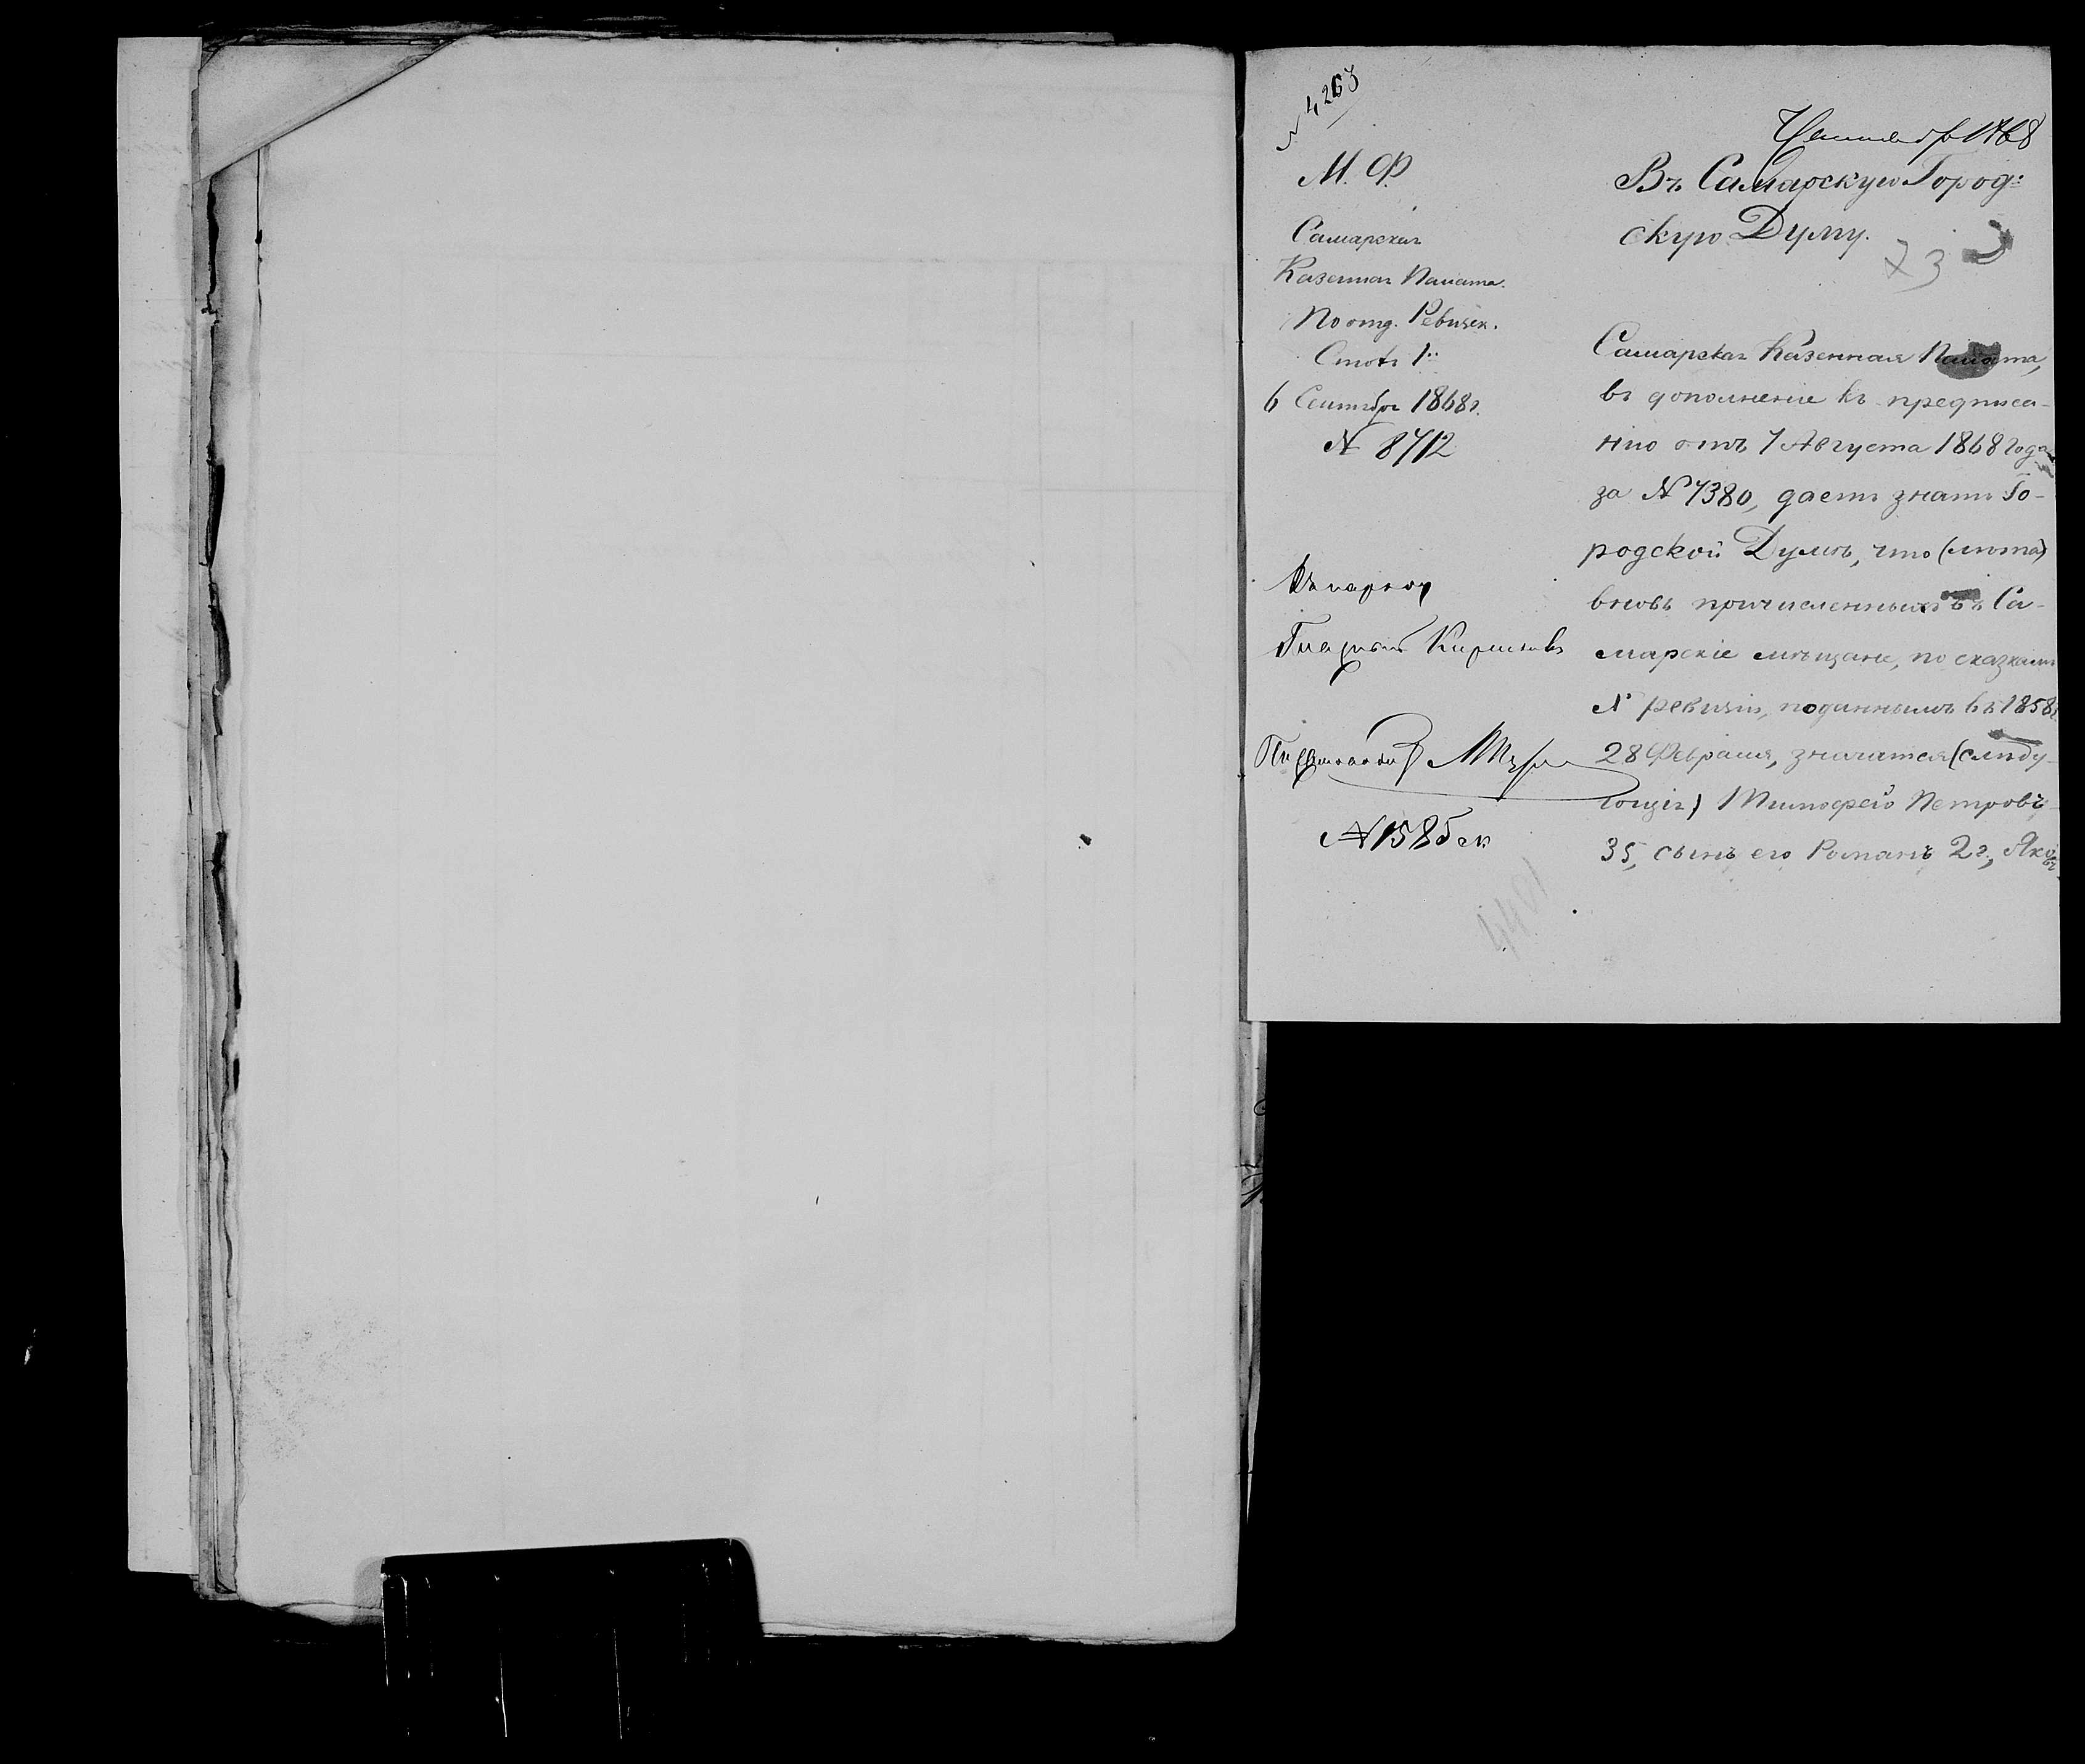 № 4263
М. Ф.
Самарская
Казенная Палата.
По отд. Ревизск.
Столъ 1.
6 Сентября 1868 г.
№ 8712
№ 1585
4401
1868
Въ Самарскую Город=
скую Думу.
73
Самарская Казенная Палата,
въ дополненіе къ предписа-
нію отъ 7 Августа 1868 года
за № 7380, даетъ знать Го-
родской Думѣ, что (лѣта)
вновь причисленныхъ въ Са-
марскіе мѣщане, по сказкамъ
X ревизіи, поданнымъ въ 1858 г.
28 Февраля, значатся (слѣду-
ющія) Тимофей Петровъ
35, сынъ его Романъ 2 г., Яковъ